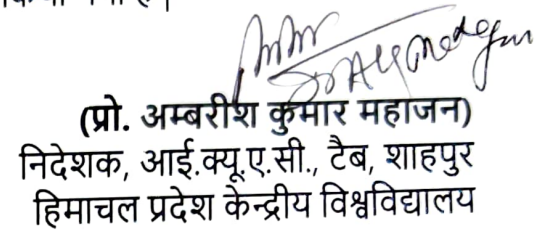 (प्रो. अम्बरीश कुमार महाजन)
निदेशक, आई.क्यू.ए.सी., टैब, शाहपुर
हिमाचल प्रदेश केन्द्रीय विश्वविद्यालय